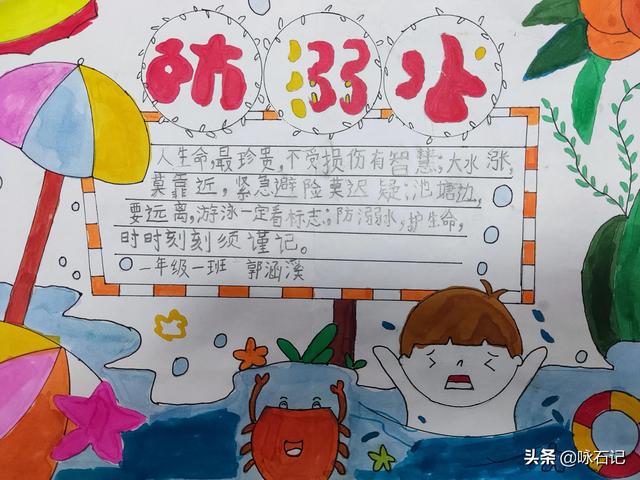 防溺水
人生命,最珍贵,不受损伤有智慧;大水涨,
莫靠近,紧急避险莫迟疑;池塘边,
要远离,游泳一定看标志;防溺水,护生命,
时时刻刻须谨记。
一年级一班 郭涵溪
头条 @咏石记